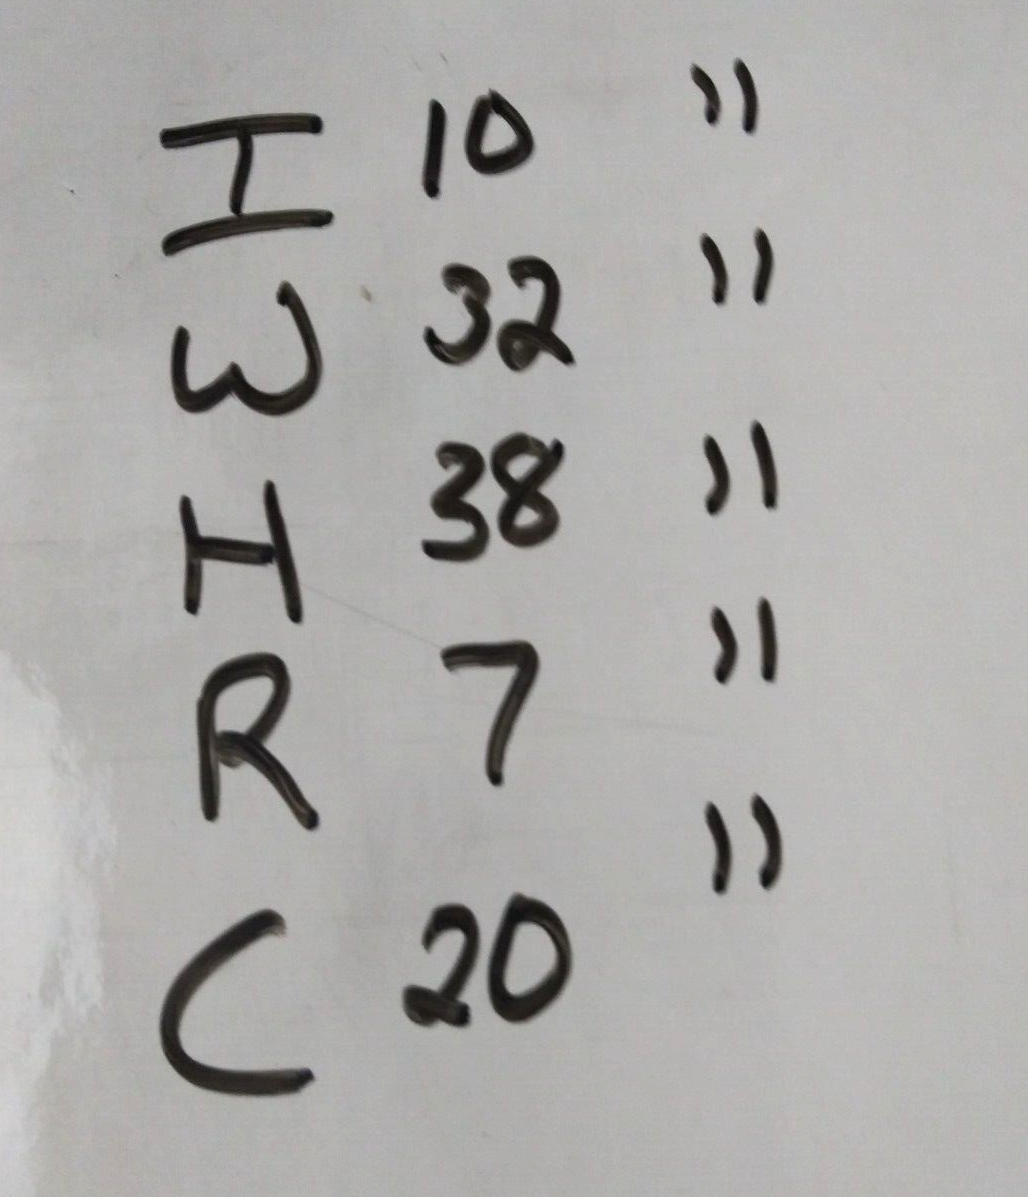 I 10 "
W 32 "
H 38 "
R 7 "
C 20 "